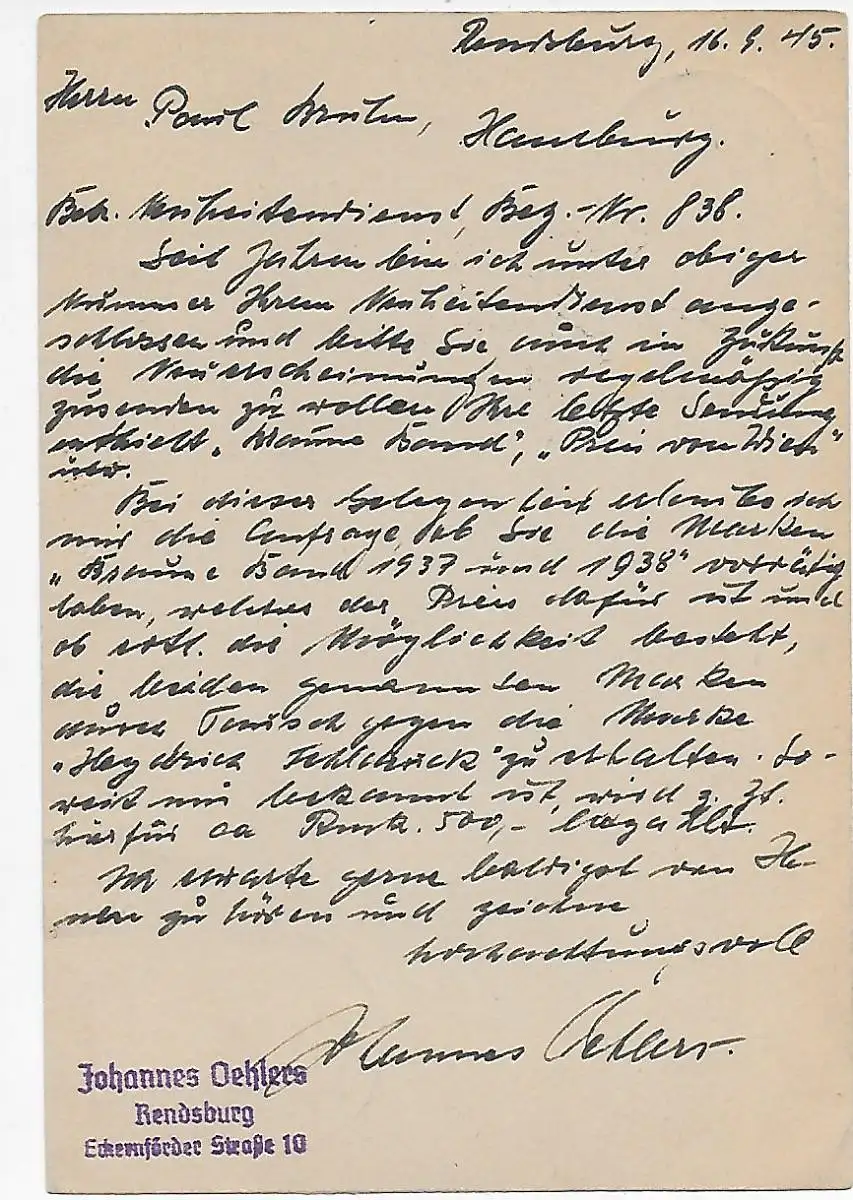 Rendsburg, 16. 9. 45.
Herrn
Paul
Hamburg.
Betr. Neuheitendienst, Bez.-Nr. 838.
Seit Jahren bin ich unter obiger
Nummer Ihrem Neuheitendienst ange-
schlossen und bitte Sie auch in Zukunft
die Neuerscheinungen regelmässig
zusenden zu wollen. Ihre letzte Sendung
enthielt „Braune Band“, „Preis von Wien“
usw.
Bei dieser Gelegenheit erlaube ich
mir die Anfrage, ob Sie die Marken
„Braune Band 1937 und 1938“ vorrätig
haben, welches der Preis dafür ist und
ob evtl. die Möglichkeit besteht,
die beiden genannten Marken
durch Tausch gegen die Marke
„Heydrich Fehldruck“ zu erhalten. So-
weit mir bekannt ist, wird z. Zt.
hierfür ca Rmk. 500,- bezahlt.
Ich erwarte gerne baldigst von Ih-
nen zu hören und zeichne
hochachtungsvoll
Johannes Oehlers.
Johannes Oehlers
Rendsburg
Eckernförder Straße 10